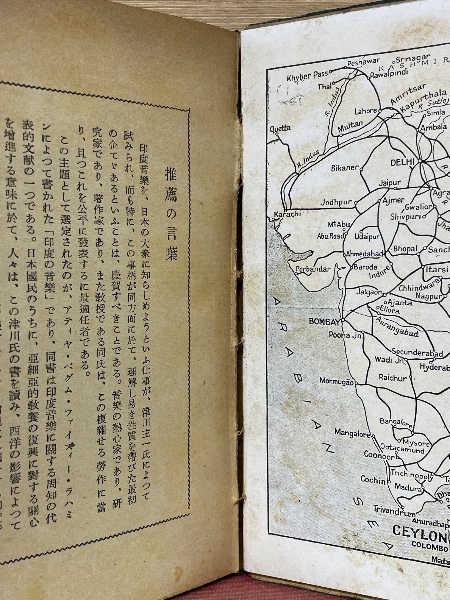 推薦の言葉
印度音樂を、日本の大衆に知らしめようといふ仕事が、津川主一氏によつて
試みられ、而も特に、この事柄が同方面に於て、理解し易き性質を帶びた最初
の企てであるといふことは、慶賀すべきことである。音樂の熱心家であり、研
究家であり、著作家であり、また教授である同氏は、この複雜せる勞作に當
り、且つこれを公平に發表するに最適任者である。
この主題として選定されたのが アテ、ヤ・ベグム・ファイズィー・ラハミ
ンによつて書かれた「印度の音樂」であり、同書は印度音樂に關する周知の代
表的文献の一つである。日本國民のうちに、亞細亞的教養の復興に對する關心
を增進する意味に於て、人々は、この津川氏の書を讀み、西洋の影響によつて
Srinagar
Peshawar
KASHMIR
Khyber Pass
Rawalpindi
Thal
R. Indus
Amritsar
Lahore
Kapurthala
R. Sutlej
Simla
Quetta
Multan
Ambala
R. Indus
Bikaner
DELHI
Jaipur
Agra
Jodhpur
Ajmer
Gwalior
Karachi
Shivpuri
Mt Abu
Abu Road
Udaipur
Bhopal
Sanch
Ahmedabad
Porbandar
Baroda
Indore
Itarsi
Chhindwara
Jalgaon
Nagpur
Ajanta
Ellora
Aurangabad
BOMBAY
Poona Jn.
Secunderabad
Wadi Jn.
Hyderab
Mormugão
Raichur
ARABIAN SEA
Bangalore
Mangalore
Mysore
Ootacamund
Coonoor
Trichinopoly
Cochin
Madura
Trivandrum
Anuradhapu
CEYLON
COLOMBO